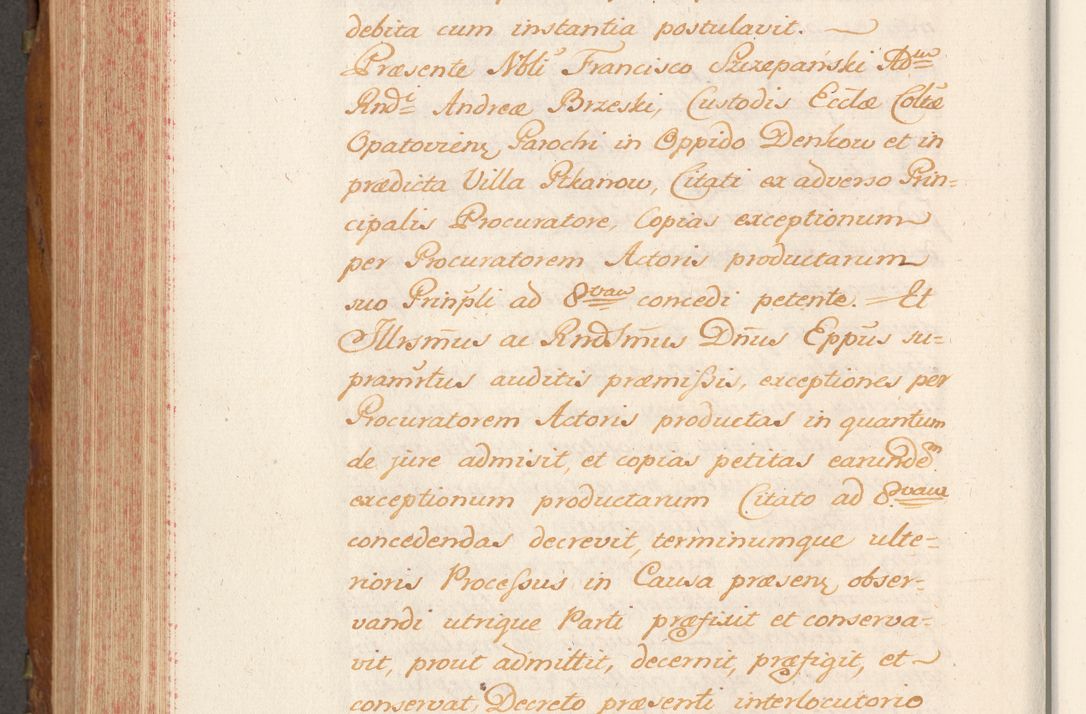 debita cum instantia postulavit. —
Præsente Nbli Francisco Szczepański Ad͠m
Rndi Andreæ Brzeski, Custodis Ecclæ Coltæ
Opatovienꝫ Parochi in Oppido Denkow et in
prædicta Villa Ptkanow, Citati ex adverso Prin=
cipalis Procuratore, Copias exceptionum
per Procuratorem Actoris productarum
suo Prinpli ad 8vam concedi petente. — Et
Illrsm̃us ac Rndsm̃us Dñus Eppũs su=
pramrtus auditis præmissis, exceptiones per
Procuratorem Actoris productas in quantum
de jure admisit, et copias petitas earundem
exceptionum productarum Citato ad 8vam
concedendas decrevit, terminumque ulte=
rioris Processus in Causa præsenꝫ obser=
vandi utrique Parti præfixit et conserva=
vit, prout admittit, decernit, præfigit, et —
conservat, Decreto præsenti interlocutorio